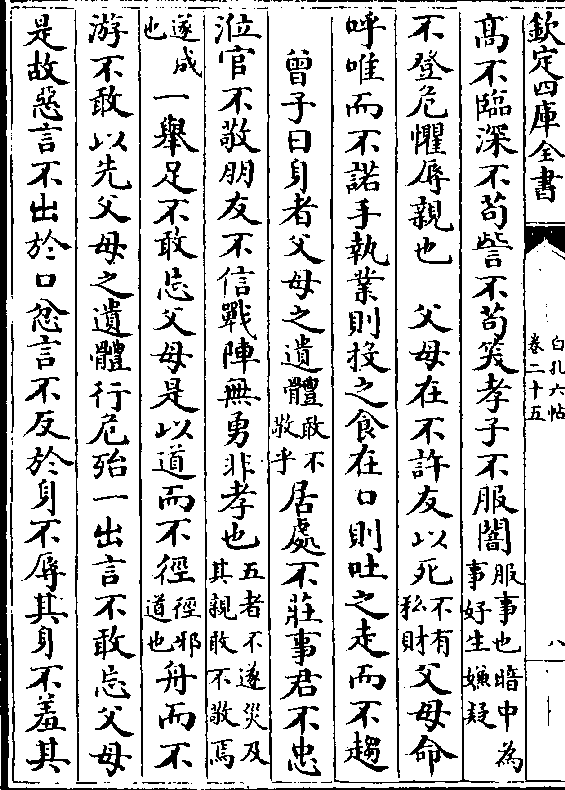 欽定四庫全書
白孔六帖
卷二十五
八
高不臨深不苟訾不苟笑孝子不服闇服事也暗中為事好生嫌疑
不登危懼辱親也　父母在不許友以死不有私財父母命
呼唯而不諾手執業則投之食在口則吐之走而不趨
曾子曰身者父母之遺體敢不敬乎居處不莊事君不忠
涖官不敬朋友不信戰陣無勇非孝也五者不遂災及其親敢不敬焉
遂成也一舉足不敢忘父母是以道而不徑徑邪道也舟而不
游不敢以先父母之遺體行危殆一出言不敢忘父母
是故惡言不出於口忿言不反於身不辱其身不羞其